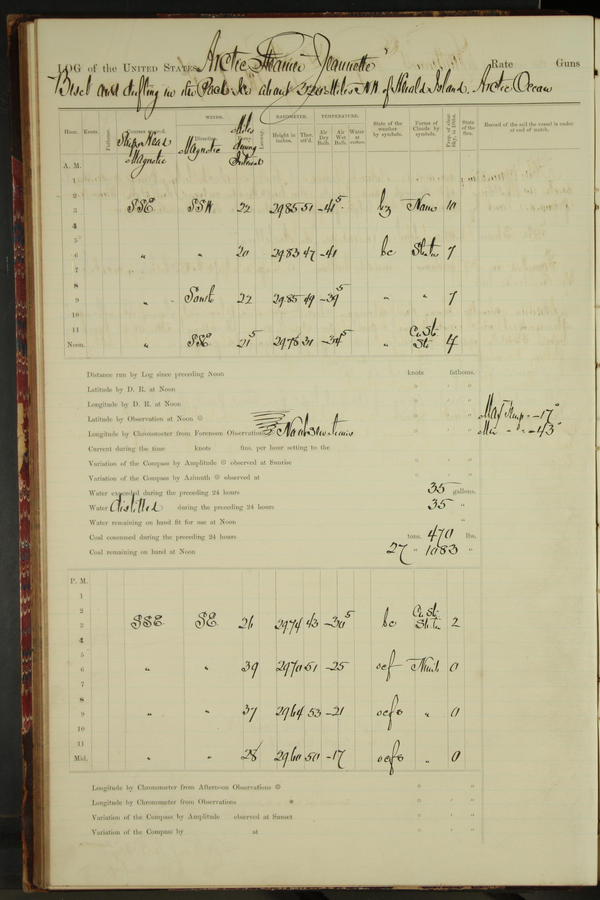 LOG of the UNITED STATES Arctic Steamer "Jeannette" Rate Guns
Beset and drifting in the Pack Ice about 220 Miles NW of Herald Island. Arctic Ocean
WINDS. BAROMETER. TEMPERATURE.
Hour. Knots. Fathoms. Ship's Head Magnetic Direction. Magnetic Miles during Interval Leeway. Height in inches. Ther. att'd. Air Dry Bulb. Air Wet Bulb. Water at surface. State of the weather by symbols. Forms of Clouds by symbols. State of the Sea. Record of the sail the vessel is under at end of watch.
A. M.
1
2
3 SSE SSW 22 29 85 51 -41 5 bz None 10
4
5
6 " " 20 29 83 47 -41 bc Stratus 7
7
8
9 " South 22 29 85 49 -39 5 " " 7
10
11
Noon. " SSE 21 5 29 78 31 -34 5 " Cu St. Str 4
Distance run by Log since preceding Noon knots fathoms.
Latitude by D. R. at Noon ° ′ ″
Longitude by D. R. at Noon ° ′ ″
Latitude by Observation at Noon ° ′ ″ Max Temp - -17°
Longitude by Chronometer from Forenoon Observations No observations ° ′ ″ Min " - -43°
Current during the time knots fms. per hour setting to the
Variation of the Compass by Amplitude observed at Sunrise ° ′ ″
Variation of the Compass by Azimuth observed at ° ′ ″
Water expended during the preceding 24 hours 35 gallons.
Water distilled during the preceding 24 hours 35 "
Water remaining on hand fit for use at Noon "
Coal consumed during the preceding 24 hours tons, 470 lbs.
Coal remaining on hand at Noon 27 " 1083 "
P. M.
1
2
3 SSE SE 26 29 74 43 -30 5 bc Cu St. Stratus 2
4
5
6 " " 39 29 70 51 -25 ocf Nimb 0
7
8
9 " " 37 29 64 53 -21 ocfs " 0
10
11
Mid. " " 28 29 60 50 -17 ocfs " 0
Longitude by Chronometer from Afternoon Observations ° ′ ″
Longitude by Chronometer from Observations ° ′ ″
Variation of the Compass by Amplitude observed at Sunset ° ′ ″
Variation of the Compass by at ° ′ ″